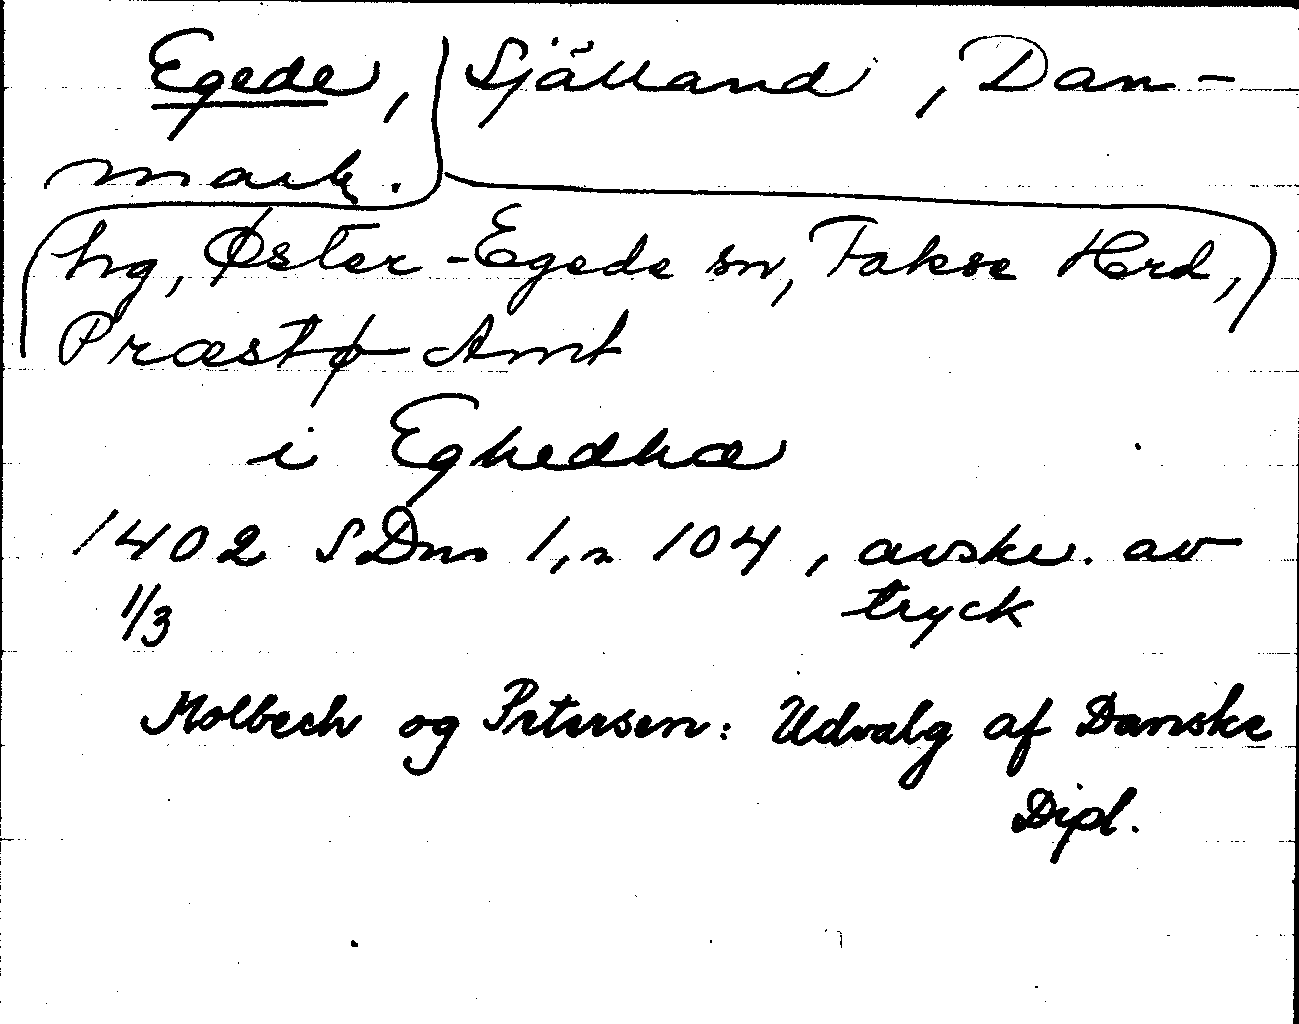 Egede, Själland, Dan-
mark.
hg, Øster-Egede sn, Fakse Hrd,
Præstø Amt
i Eghedhæ
1402 SDns 1, n 104, avskr. av
1/3 tryck
Molbech og Petersen: Udvalg af Danske
Dipl.